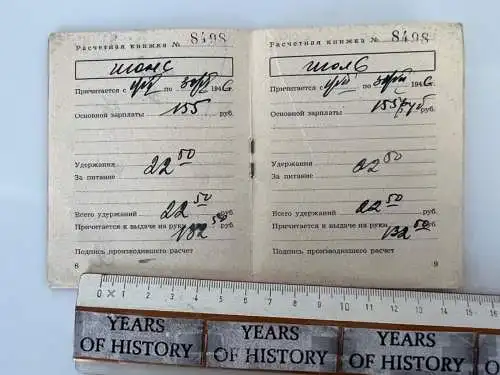 Расчетная книжка № 8498
Причитается с по 1946
Основной зарплаты 155 руб.
Удержания
За питание 22 50
Всего удержаний 22 50 руб.
Причитается к выдаче на руки 132 50 руб.
Подпись производившего расчет
8
Расчетная книжка № 8498
Причитается с по 1946
Основной зарплаты 155 руб.
Удержания
За питание 22 50
Всего удержаний 22 50 руб.
Причитается к выдаче на руки 132 50 руб.
Подпись производившего расчет
9
0 1 2 3 4 5 6 7 8 9 10 11 12 13 14 15 16
YEARS OF HISTORY
YEARS OF HISTORY
YEARS OF HISTORY